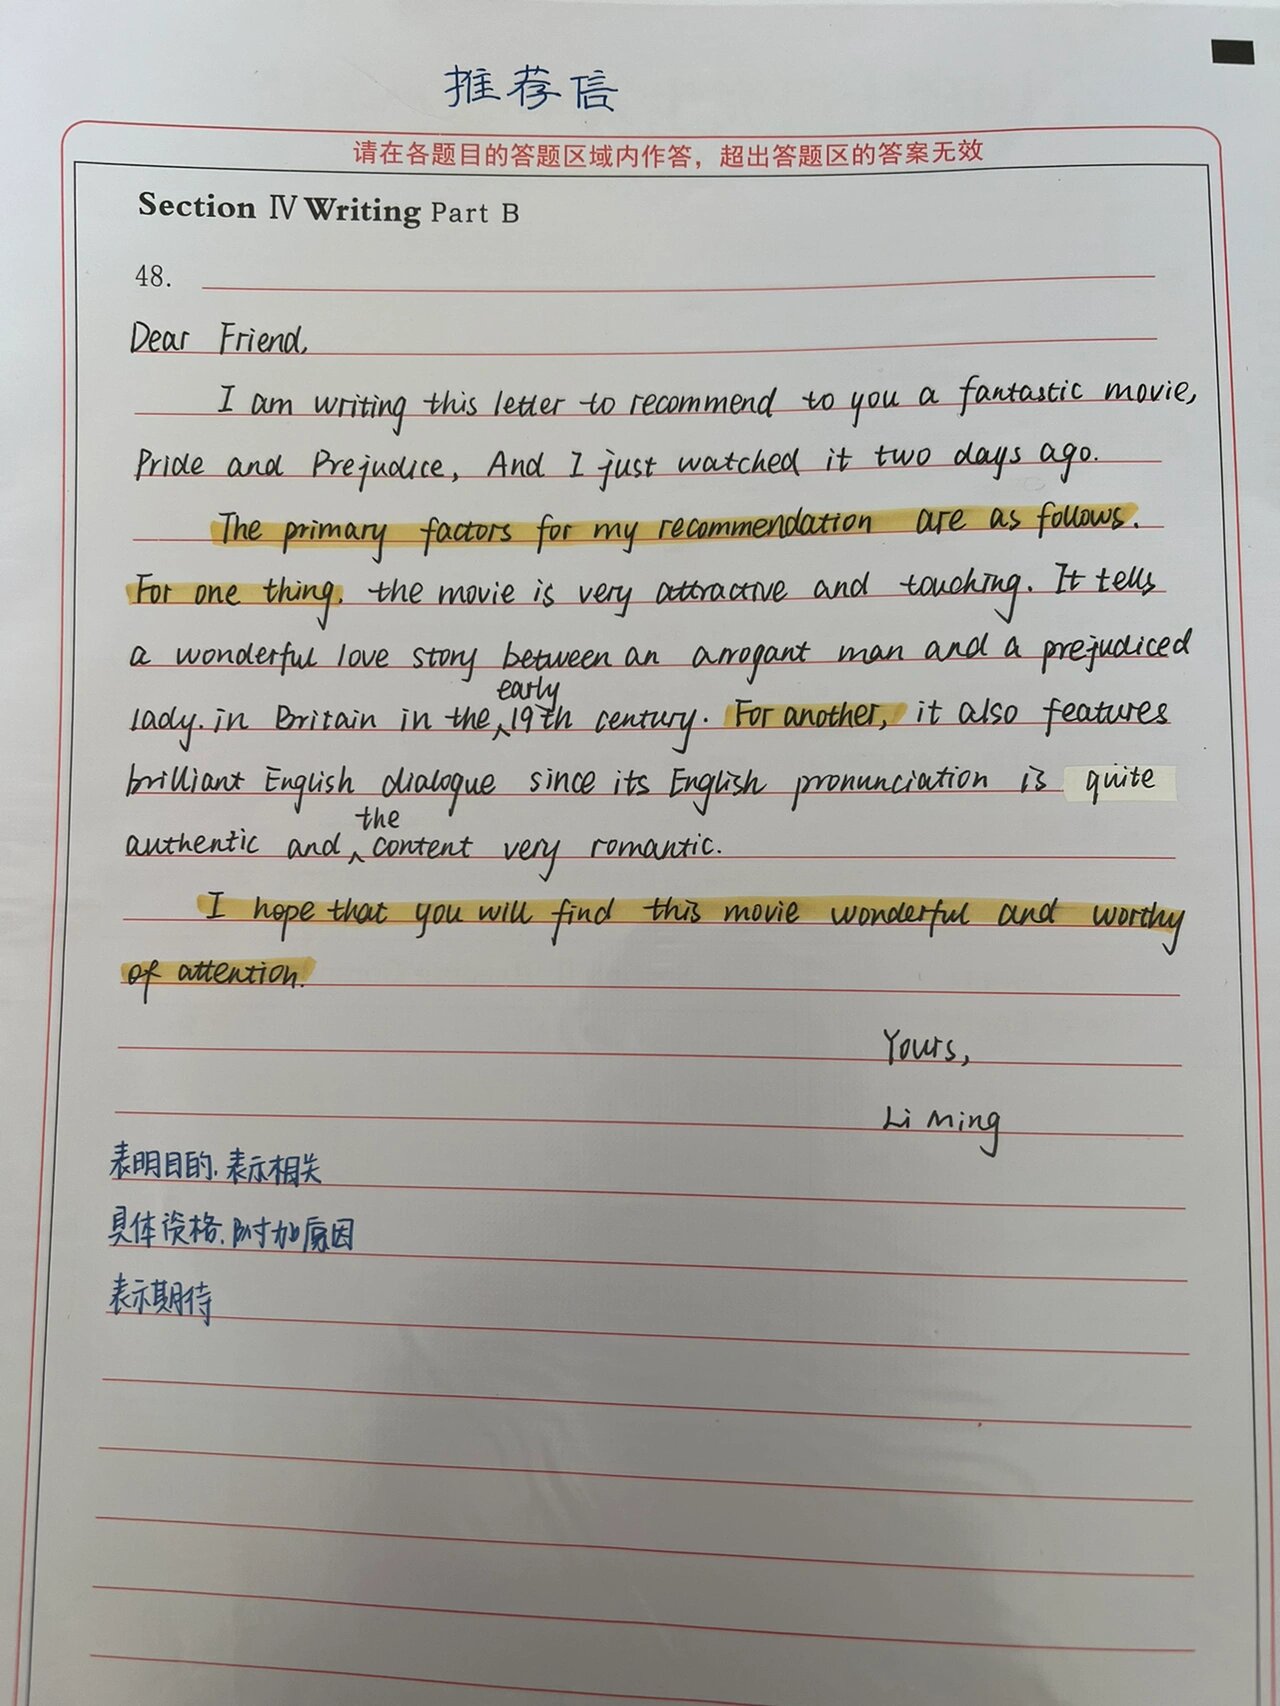 推荐信
请在各题目的答题区域内作答，超出答题区的答案无效
Section Ⅳ Writing Part B
48.
Dear Friend,
I am writing this letter to recommend to you a fantastic movie,
Pride and Prejudice, And I just watched it two days ago.
The primary factors for my recommendation are as follows.
For one thing, the movie is very attractive and touching. It tells
a wonderful love story between an arrogant man and a prejudiced
early
lady. in Britain in the ^ 19th century. For another, it also features
brilliant English dialogue since its English pronunciation is quite
the
authentic and ^ content very romantic.
I hope that you will find this movie wonderful and worthy
of attention.
Yours,
Li Ming
表明目的、表示相关
具体资格、附加原因
表示期待